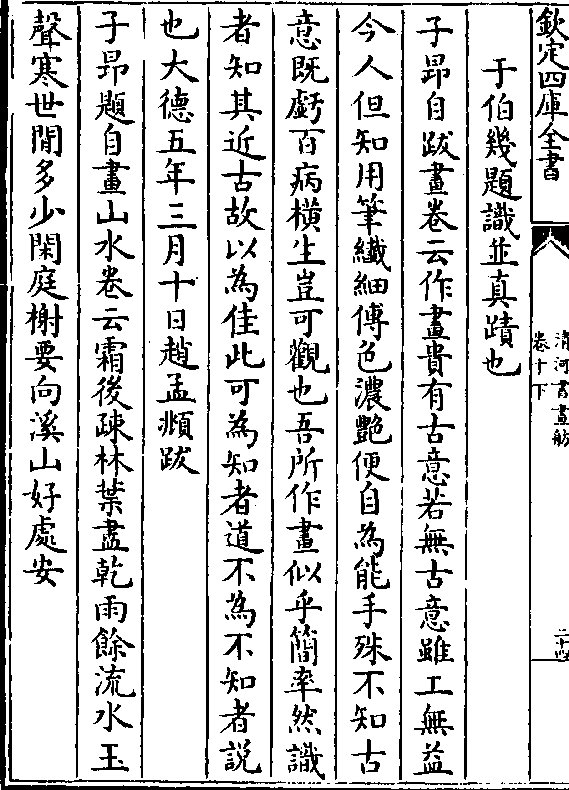 欽定四庫全書
清河書畫舫
卷十下
二十四
于伯幾題識並真蹟也
子昻自跋畫卷云作畫貴有古意若無古意雖工無益
今人但知用筆纎細傅色濃艷便自為能手殊不知古
意既虧百病橫生豈可觀也吾所作畫似乎簡率然識
者知其近古故以為佳此可為知者道不為不知者説
也大德五年三月十日趙孟頫跋
子昻題自畫山水卷云霜後疎林葉盡乾雨餘流水玉
聲寒世間多少閑庭榭要向溪山好處安